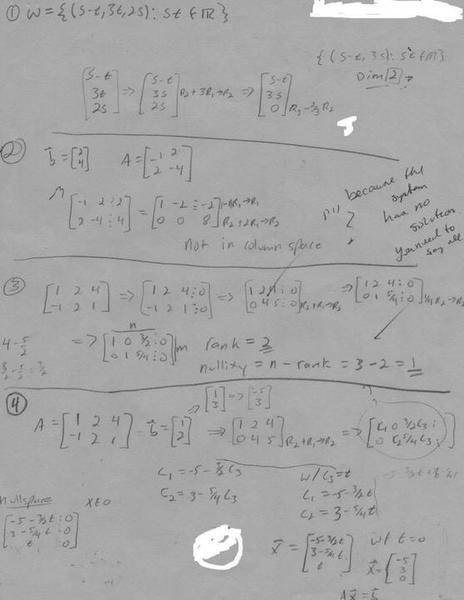 ① W = {(s-t, 3t, 2s): s,t ∈ ℝ}
{(s-t, 3s): s,t ∈ ℝ}
Dim(2)
[s-t; 3t; 2s] ⇒ [s-t; 3s; 2s] R2+3R1→R2 ⇒ [s-t; 3s; 0] R3-2/3R2
② b = [2; 4] A = [-1 2; 2 -4]
[-1 2 : 2; 2 -4 : 4] = [1 -2 : -2; 0 0 8] -1R1→R1 R2+2R1→R2
not in column space
because the
system
has no
solution
you need to
say all
③ [1 2 4; -1 2 1] ⇒ [1 2 4 : 0; -1 2 1 : 0] ⇒ [1 2 4 : 0; 0 4 5 : 0] R2+R1→R2 ⇒ [1 2 4 : 0; 0 1 5/4 : 0] 1/4 R2→R2
4 - 5/2
8/2 - 5/2 = 3/2
n
⇒ [1 0 3/2 : 0; 0 1 5/4 : 0] m rank = 2
nullity = n - rank = 3 - 2 = 1
④ ⇒ [1; 3] ⇒ [-5; 3]
A = [1 2 4; -1 2 1] b = [1; 2] ⇒ [1 2 4; 0 4 5] R2+R1→R2 ⇒ [C1 0 3/2C3 :; 0 C2 5/4C3 :]
C1 = -5 - 3/2C3 w/ C3 = t
C2 = 3 - 5/4C3 C1 = -5 - 3/2t
C2 = 3 - 5/4t
Nullspace x t=0
[-5 - 3/2t : 0; 3 - 5/4t : 0; t : 0]
x = [-5 - 3/2t; 3 - 5/4t; t] w/ t = 0
x = [-5; 3; 0]
Ax = b